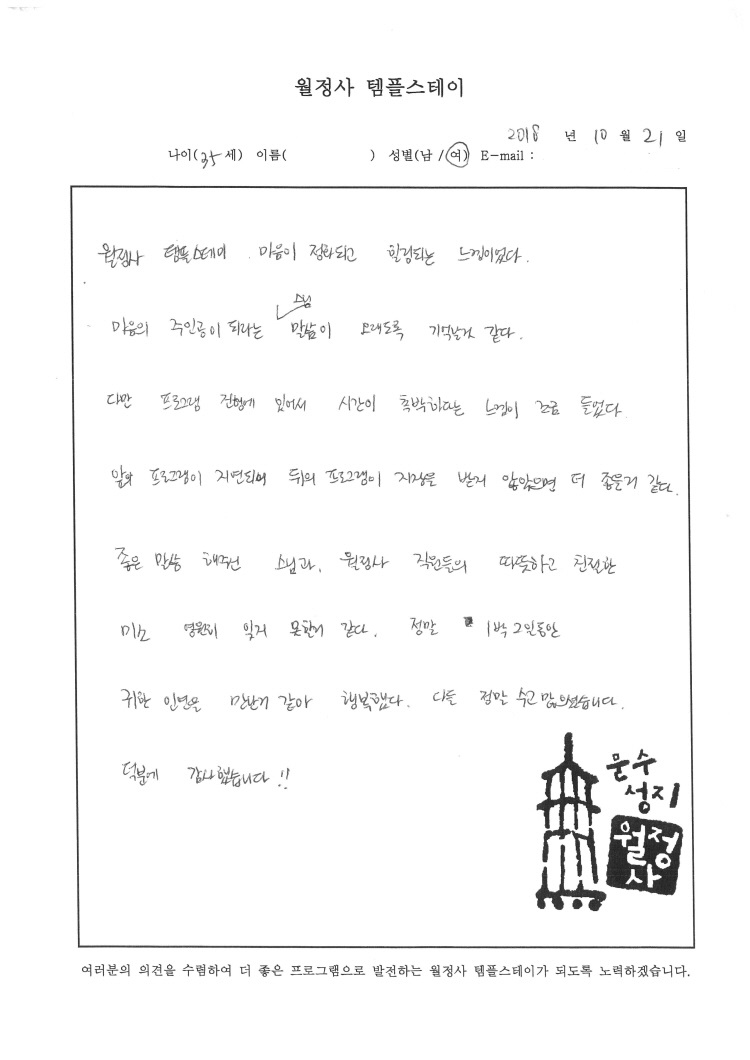 월정사 템플스테이
2018 년 10 월 21 일
나이(35세) 이름( ) 성별(남 / 여) E-mail :
월정사 템플스테이 마음이 정화되고 힐링되는 느낌이었다.
스님
마음의 주인공이 되라는 말씀이 오래도록 기억날거 같다.
다만 프로그램 진행에 있어서 시간이 촉박하다는 느낌이 조금 들었다.
앞의 프로그램이 지연되어 뒤의 프로그램이 지장을 받지 않았으면 더 좋을거 같다.
좋은 말씀 해주신 스님과, 월정사 직원들의 따뜻하고 친절한
미소 영원히 잊지 못할거 같다. 정말 1박 2일동안
귀한 인연을 만난거 같아 행복했다. 다들 정말 수고 많으셨습니다.
덕분에 감사했습니다 !!
문수
성지
월정
사
여러분의 의견을 수렴하여 더 좋은 프로그램으로 발전하는 월정사 템플스테이가 되도록 노력하겠습니다.